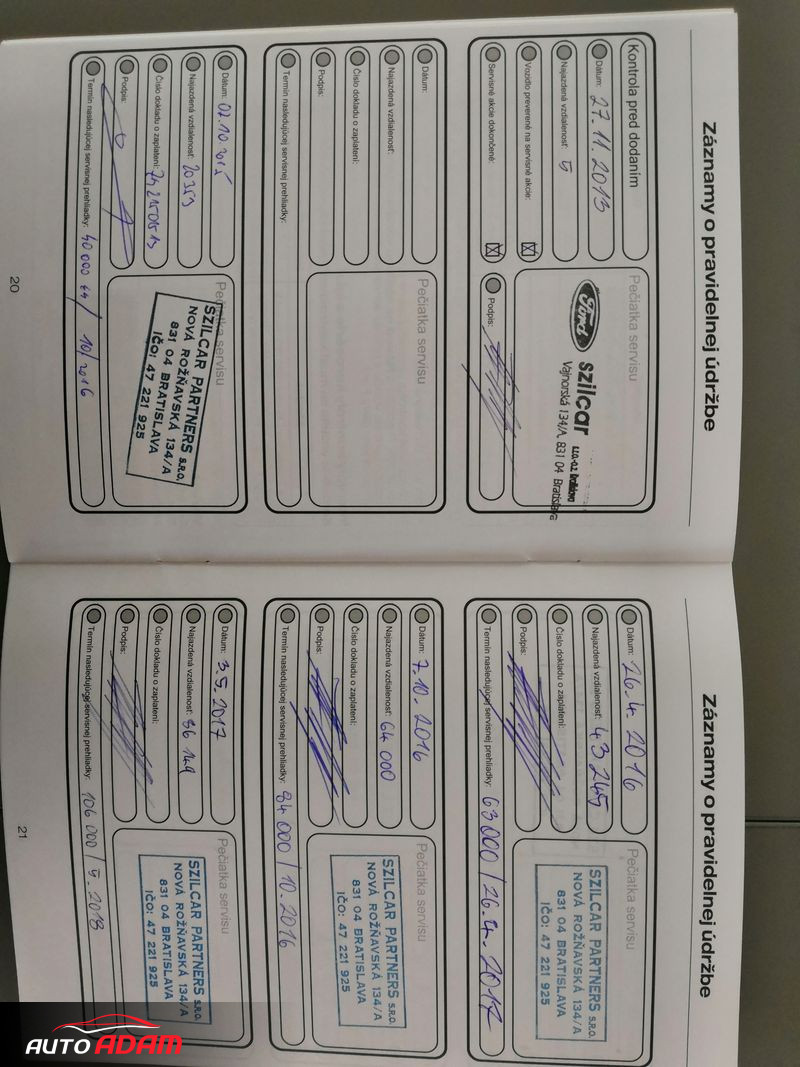 Záznamy o pravidelnej údržbe
Kontrola pred dodaním
Dátum: 27.11.2013
Najazdená vzdialenosť: 5
Vozidlo preverené na servisné akcie:
Servisné akcie dokončené:
Pečiatka servisu
Ford
szilcar
Vajnorská 134/A, 831 04 Bratislava
Podpis:
Dátum:
Najazdená vzdialenosť:
Číslo dokladu o zaplatení:
Podpis:
Termín nasledujúcej servisnej prehliadky:
Pečiatka servisu
Dátum: 02.10.2015
Najazdená vzdialenosť: 20353
Číslo dokladu o zaplatení:
Podpis:
Termín nasledujúcej servisnej prehliadky: 40 000 km / 10/2016
Pečiatka servisu
SZILCAR PARTNERS S.R.O.
NOVÁ ROŽŇAVSKÁ 134/A
831 04 BRATISLAVA
IČO: 47 221 925
20
Záznamy o pravidelnej údržbe
Dátum: 26.4.2016
Najazdená vzdialenosť: 43245
Číslo dokladu o zaplatení:
Podpis:
Termín nasledujúcej servisnej prehliadky: 63000 / 26.4.2017
Pečiatka servisu
SZILCAR PARTNERS S.R.O.
NOVÁ ROŽŇAVSKÁ 134/A
831 04 BRATISLAVA
IČO: 47 221 925
Dátum: 7.10.2016
Najazdená vzdialenosť: 64 000
Číslo dokladu o zaplatení:
Podpis:
Termín nasledujúcej servisnej prehliadky: 84 000 / 10.2016
Pečiatka servisu
SZILCAR PARTNERS S.R.O.
NOVÁ ROŽŇAVSKÁ 134/A
831 04 BRATISLAVA
IČO: 47 221 925
Dátum: 3.5.2017
Najazdená vzdialenosť: 86 149
Číslo dokladu o zaplatení:
Podpis:
Termín nasledujúcej servisnej prehliadky: 106 000 / 5.2018
Pečiatka servisu
SZILCAR PARTNERS S.R.O.
NOVÁ ROŽŇAVSKÁ 134/A
831 04 BRATISLAVA
IČO: 47 221 925
21
AUTO ADAM